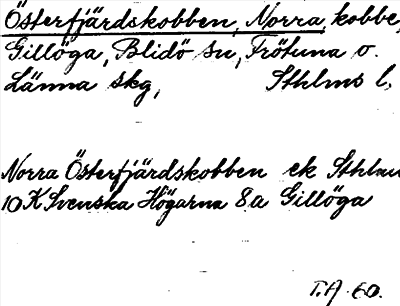 Österfjärdskobben, Norra, kobbe,
Gillöga, Blidö sn, Frötuna o.
Länna skg, Sthlms l,
Norra Österfjärdskobben ek
10 K Svenska Högarna 8a Gillöga
T.A. 60.